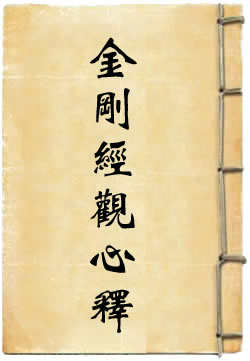 金剛經觀心釋